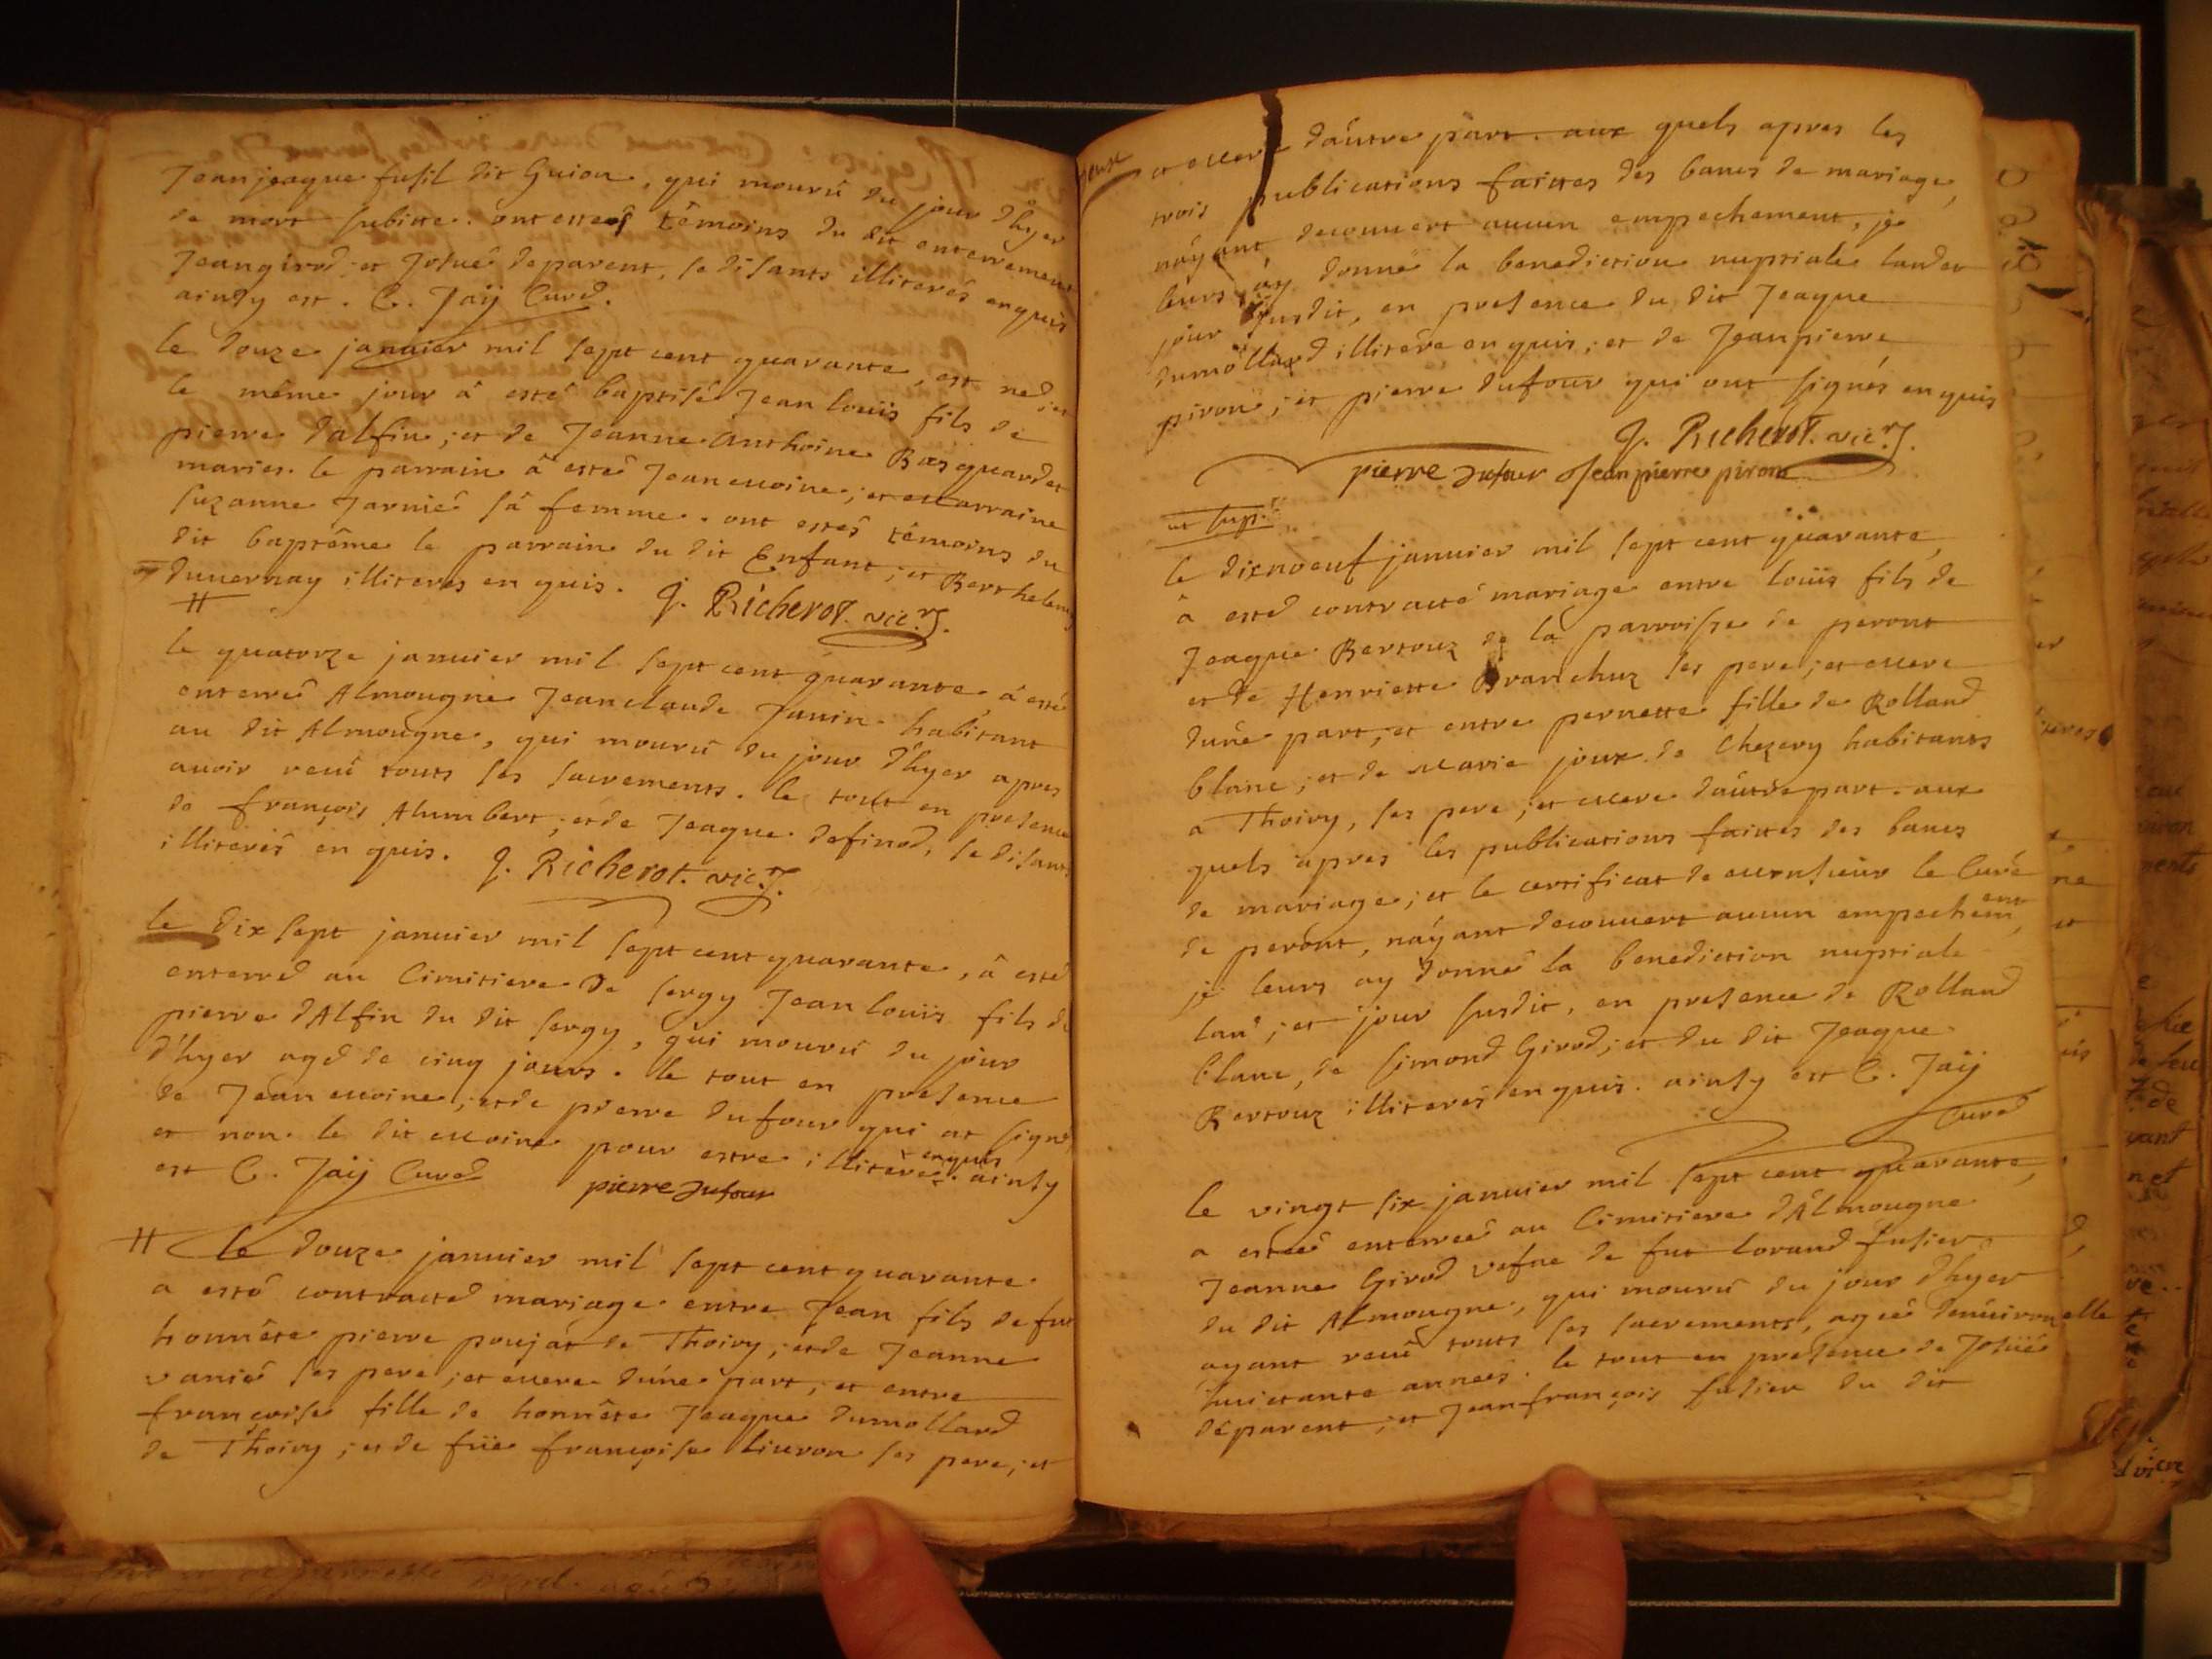 Jeanjeaque fusil dit Guion, qui mourû du jour d'hyer
de mort subitte. ont estes témoins du dit enterrement
Jean girod; et Josué deparent, se disants illiterés enquis
ainsy est. C. Jaÿ Curé.
le douze januier mil sept cent quarante, est né; et
le même jour â esté baptisé Jean louïs fils de
pierre dalfin; et de Jeanne Anthoine
maries. le parrain â esté Jean Moine; et Marraine
Suzanne Jarnié sâ femme. ont estés témoins du
dit baptême le parrain du dit Enfant; et Barthelemy
Duuernay illiteres enquis. J. Richerot. vic.re
le quatorze januier mil sept cent quarante, â esté
enterré Almougne Jeanclaude Janin habitant
au dit Almougne, qui mourû du jour d'hyer apres
auoir reçû touts ses sacrements. le tout en presence
de françois Humbert; et de Jeaque definod, se disants
illiterés enquis. J. Richerot. vic.re
le dixsept januier mil sept cent quarante, â esté
enterré au Cimitiere De sergy Jean louïs fils de
pierre dAlfin du dit sergy, qui mourû du jour
d'hyer agé de cinq jours. le tout en presence
de Jean Moine; et de pierre dufour qui at signé,
et non le dit Moine pour estre illiteré enquis. ainsy
est C. Jaÿ Curé pierre dufour
# le douze januier mil sept cent quarante
a esté contracté mariage entre Jean fils de fut
honnête pierre poujat de Thoiry; et de Jeanne
vanié ses pere; et mere d'úne part; et entre
françoise fille de honnête Jeaque dumollard
de Thoiry; et de füe françoise Liuron ses pere; et
et mere d'aútre part. aux quels apres les
trois publications faittes des bancs de mariage,
náyant decouuert aucun empechement, je
leurs ay donné la benediction nuptiale lan et
jour susdit, en presence du dit Jeaque
dumollard illiteré enquis; et de Jeanpierre
piron; et pierre dufour qui ont signés enquis
J. Richerot. vic.re
pierre dufour Jean pierre piron
ut sup.
le dixnoeuf januier mil sept cent quarante,
â esté contracté mariage entre louïs fils de
Jeaque Bertouz de la parroisse de peront
et de Henriette Branchuz ses pere; et mere
d'úne part; et entre pernette fille de Rolland
blanc; et de Marie joux de Chezery habitants
a Thoiry, ses pere; et mere d'aútre part. aux
quels apres les publications faittes des bancs
de mariage; et le certificat de Monsieur le Curé
de peront, náyant decouuert aucun empechement,
je leurs ay donné la benediction nuptiale
lan; et jour susdit, en presence de Rolland
blanc, de Simond Girod; et du dit Jeaque
Bertouz illiterés enquis. ainsy est C. Jaÿ
Curé
le vingt six januier mil sept cent quarante,
a esteé enterreé au Cimitiere dAlmougne
Jeanne Girod vefue de fut Lorand fusier
du dit Almougne, qui mourû du jour d'hyer
ayant reçû touts ses sacrements, ageé denuiron elle
huictante années. le tout en presence de Josüé
déparent; et Jeanfrançois fusier du dit